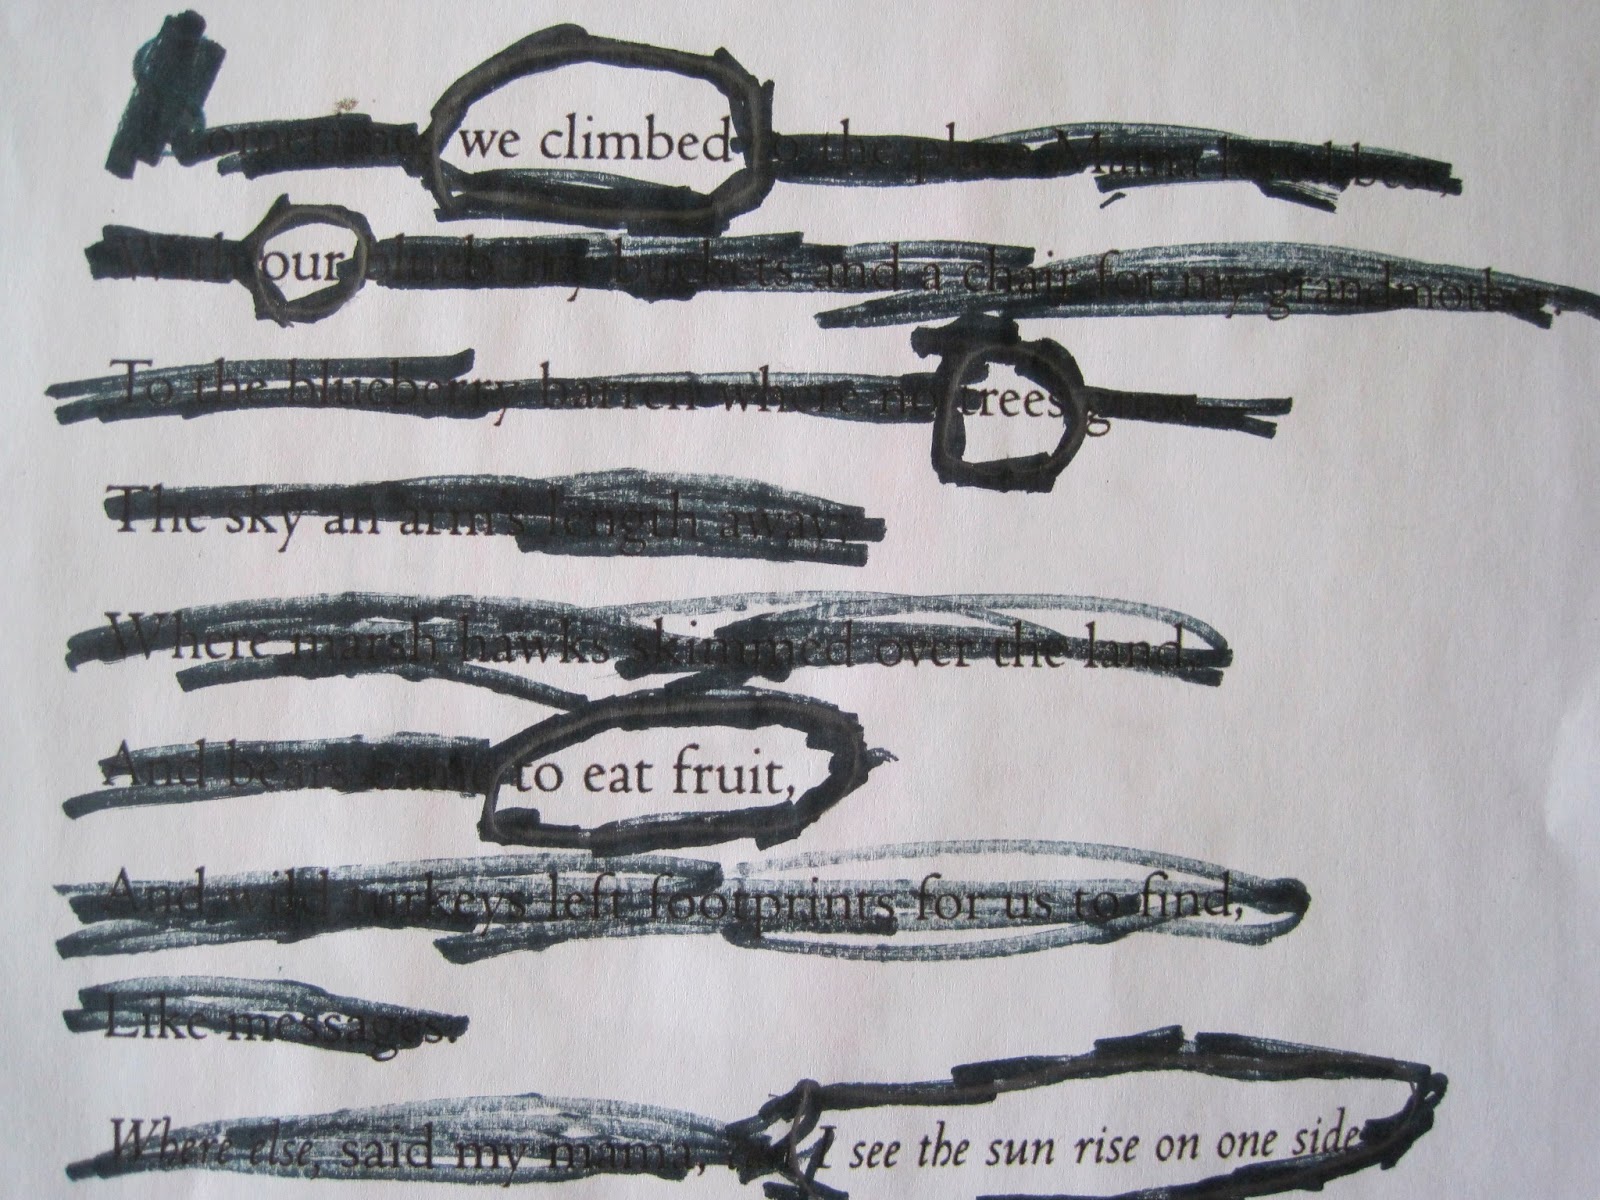 Sometimes we climbed to the place Mama loved best,
With our blueberry buckets and a chair for my grandmother,
To the blueberry barren where no trees
The sky an arm's length away;
Where marsh hawks skimmed over the land,
And bears came to eat fruit,
And wild turkeys left footprints for us to find,
Like messages.
Where else, said my mama, I see the sun rise on one side